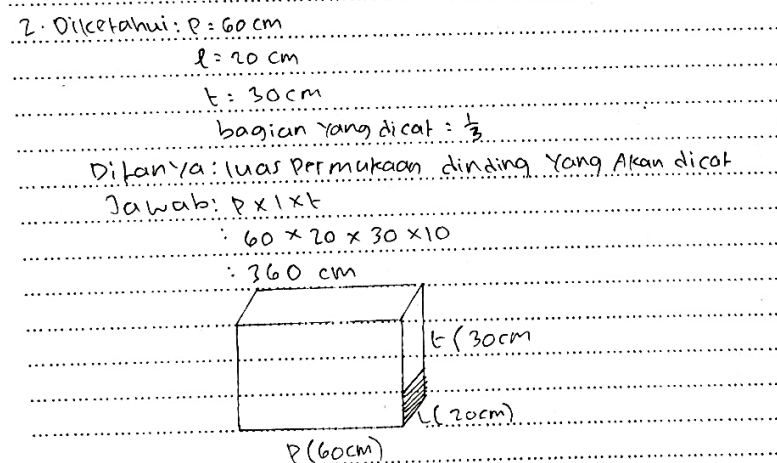 2. Diketahui: P = 60 cm
l = 20 cm
t = 30 cm
bagian yang dicat = 1/3
Ditanya: luas Permukaan dinding Yang Akan dicat
Jawab: P x l x t
: 60 x 20 x 30 x 10
: 360 cm
t (30cm
L (20cm)
P (60cm)